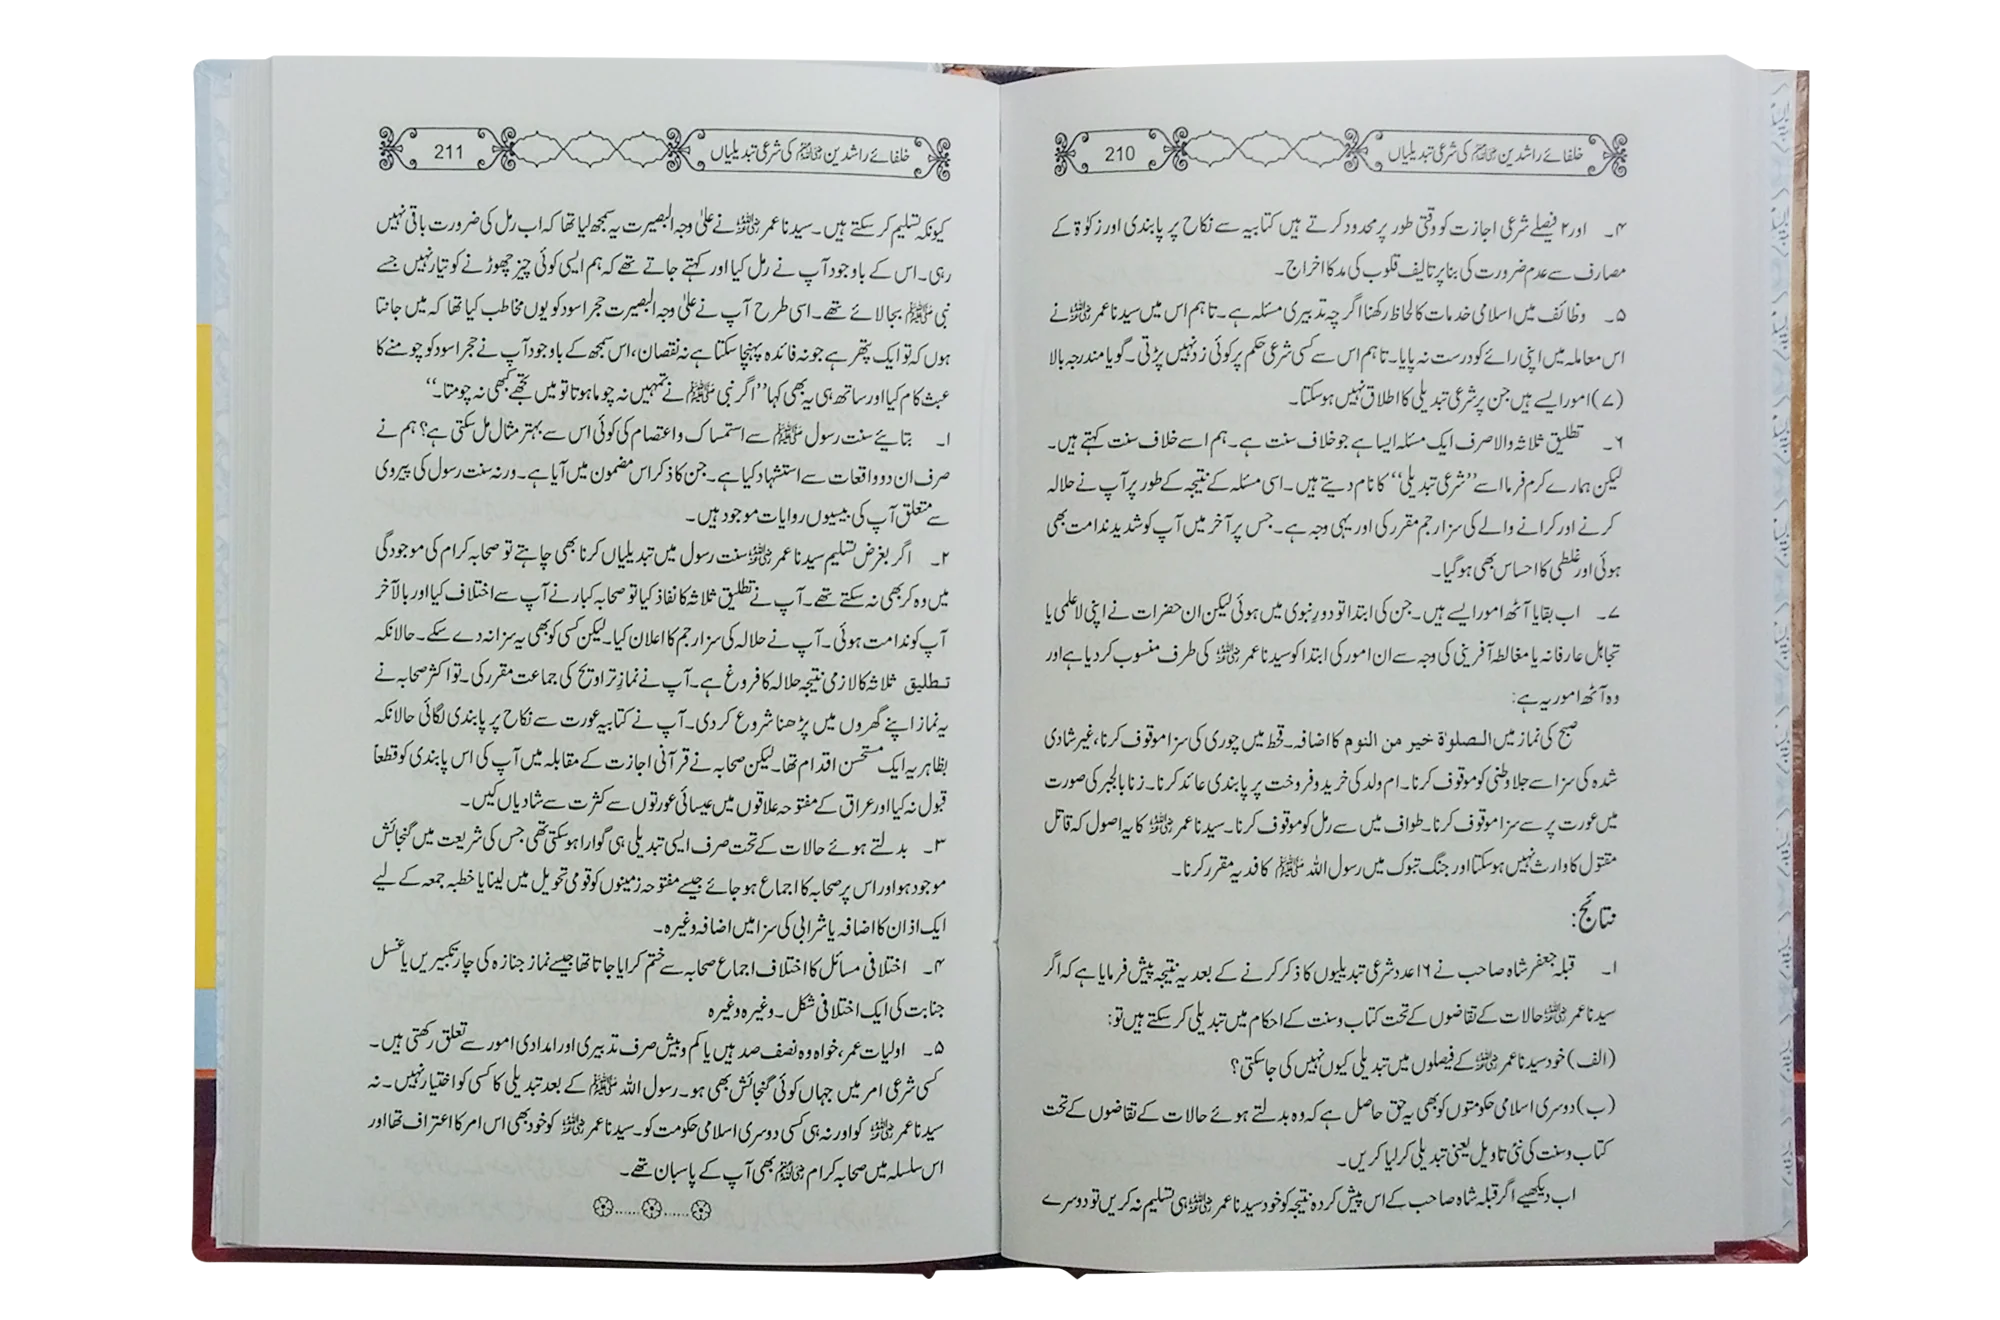 خلفائے راشدین ﷢ کی شرعی تبدیلیاں 210
۴۔ اور ۲ فیصلے شرعی اجازت کو وقتی طور پر محدود کرتے ہیں کتابیہ سے نکاح پر پابندی اور زکوٰۃ کے
مصارف سے عدم ضرورت کی بنا پر تالیف قلوب کی مد کا اخراج۔
۵۔ وظائف میں اسلامی خدمات کا لحاظ رکھنا اگرچہ تدبیری مسئلہ ہے۔ تاہم اس میں سیدنا عمر ﷜ نے
اس معاملہ میں اپنی رائے کو درست نہ پایا۔ تاہم اس سے کسی شرعی حکم پر کوئی زد نہیں پڑتی۔ گویا مندرجہ بالا
(۷) امور ایسے ہیں جن پر شرعی تبدیلی کا اطلاق نہیں ہو سکتا۔
۶۔ تطلیق ثلاثہ والا صرف ایک مسئلہ ایسا ہے جو خلاف سنت ہے۔ ہم اسے خلاف سنت کہتے ہیں۔
لیکن ہمارے کرم فرما اسے ’’شرعی تبدیلی‘‘ کا نام دیتے ہیں۔ اسی مسئلہ کے نتیجہ کے طور پر آپ نے حلالہ
کرنے اور کرانے والے کی سزا رجم مقرر کی اور یہی وجہ ہے۔ جس پر آخر میں آپ کو شدید ندامت بھی
ہوئی اور غلطی کا احساس بھی ہو گیا۔
۷۔ اب بقایا آٹھ امور ایسے ہیں۔ جن کی ابتدا تو دور نبوی میں ہوئی لیکن ان حضرات نے اپنی لاعلمی یا
تجاہل عارفانہ یا مغالطہ آفرینی کی وجہ سے ان امور کی ابتدا کو سیدنا عمر ﷜ کی طرف منسوب کر دیا ہے اور
وہ آٹھ امور یہ ہے:
صبح کی نماز میں الصلوٰۃ خیر من النوم کا اضافہ۔ قحط میں چوری کی سزا موقوف کرنا، غیر شادی
شدہ کی سزا سے جلا وطنی کو موقوف کرنا۔ ام ولد کی خرید و فروخت پر پابندی عائد کرنا۔ زنا بالجبر کی صورت
میں عورت پر سے سزا موقوف کرنا۔ طواف میں سے رمل کو موقوف کرنا۔ سیدنا عمر ﷜ کا یہ اصول کہ قاتل
مقتول کا وارث نہیں ہو سکتا اور جنگ تبوک میں رسول اللہ ﷺ کا فدیہ مقرر کرنا۔
نتائج:
۱۔ قبلہ جعفر شاہ صاحب نے ۱۶ عدد شرعی تبدیلیوں کا ذکر کرنے کے بعد یہ نتیجہ پیش فرمایا ہے کہ اگر
سیدنا عمر ﷜ حالات کے تقاضوں کے تحت کتاب و سنت کے احکام میں تبدیلی کر سکتے ہیں تو:
(الف) خود سیدنا عمر ﷜ کے فیصلوں میں تبدیلی کیوں نہیں کی جا سکتی؟
(ب) دوسری اسلامی حکومتوں کو بھی یہ حق حاصل ہے کہ وہ بدلتے ہوئے حالات کے تقاضوں کے تحت
کتاب و سنت کی نئی تاویل یعنی تبدیلی کر لیا کریں۔
اب دیکھیے اگر قبلہ شاہ صاحب کے اس پیش کردہ نتیجہ کو خود سیدنا عمر ﷜ ہی تسلیم نہ کریں تو دوسرے
خلفائے راشدین ﷢ کی شرعی تبدیلیاں 211
کیونکہ تسلیم کر سکتے ہیں۔ سیدنا عمر ﷜ نے علیٰ وجہ البصیرت یہ سمجھ لیا تھا کہ اب رمل کی ضرورت باقی نہیں
رہی۔ اس کے باوجود آپ نے رمل کیا اور کہتے جاتے تھے کہ ہم ایسی کوئی چیز چھوڑنے کو تیار نہیں جسے
نبی ﷺ بجا لائے تھے۔ اسی طرح آپ نے علیٰ وجہ البصیرت حجر اسود کو یوں مخاطب کیا تھا کہ میں جانتا
ہوں کہ تو ایک پتھر ہے جو نہ فائدہ پہنچا سکتا ہے نہ نقصان، اس سمجھ کے باوجود آپ نے حجر اسود کو چومنے کا
عبث کام کیا اور ساتھ ہی یہ بھی کہا ’’اگر نبی ﷺ نے تمہیں نہ چوما ہوتا تو میں تجھے کبھی نہ چومتا۔‘‘
۱۔ بتائیے سنت رسول ﷺ سے استمساک و اعتصام کی کوئی اس سے بہتر مثال مل سکتی ہے؟ ہم نے
صرف ان دو واقعات سے استشہاد کیا ہے۔ جن کا ذکر اس مضمون میں آیا ہے۔ ورنہ سنت رسول کی پیروی
سے متعلق آپ کی بیسیوں روایات موجود ہیں۔
۲۔ اگر بغرض تسلیم سیدنا عمر ﷜ سنت رسول میں تبدیلیاں کرنا بھی چاہتے تو صحابہ کرام کی موجودگی
میں وہ کر بھی نہ سکتے تھے۔ آپ نے تطلیق ثلاثہ کا نفاذ کیا تو صحابہ کبار نے آپ سے اختلاف کیا اور بالآخر
آپ کو ندامت ہوئی۔ آپ نے حلالہ کی سزا رجم کا اعلان کیا۔ لیکن کسی کو بھی یہ سزا نہ دے سکے۔ حالانکہ
تطلیق ثلاثہ کا لازمی نتیجہ حلالہ کا فروغ ہے۔ آپ نے نمازِ تراویح کی جماعت مقرر کی۔ تو اکثر صحابہ نے
یہ نماز اپنے گھروں میں پڑھنا شروع کر دی۔ آپ نے کتابیہ عورت سے نکاح پر پابندی لگائی حالانکہ
بظاہر یہ ایک مستحسن اقدام تھا۔ لیکن صحابہ نے قرآنی اجازت کے مقابلہ میں آپ کی اس پابندی کو قطعاً
قبول نہ کیا اور عراق کے مفتوحہ علاقوں میں عیسائی عورتوں سے کثرت سے شادیاں کیں۔
۳۔ بدلتے ہوئے حالات کے تحت صرف ایسی تبدیلی ہی گوارا ہو سکتی تھی جس کی شریعت میں گنجائش
موجود ہو اور اس پر صحابہ کا اجماع ہو جائے جیسے مفتوحہ زمینوں کو قومی تحویل میں لینا یا خطبہ جمعہ کے لیے
ایک اذان کا اضافہ یا شرابی کی سزا میں اضافہ وغیرہ۔
۴۔ اختلافی مسائل کا اختلاف اجماع صحابہ سے ختم کرایا جاتا تھا جیسے نماز جنازہ کی چار تکبیریں یا غسل
جنابت کی ایک اختلافی شکل۔ وغیرہ وغیرہ
۵۔ اولیات عمر، خواہ وہ نصف صد ہیں یا کم و بیش صرف تدبیری اور امدادی امور سے تعلق رکھتی ہیں۔
کسی شرعی امر میں جہاں کوئی گنجائش بھی ہو۔ رسول اللہ ﷺ کے بعد تبدیلی کا کسی کو اختیار نہیں۔ نہ
سیدنا عمر ﷜ کو اور نہ ہی کسی دوسری اسلامی حکومت کو۔ سیدنا عمر ﷜ کو خود بھی اس امر کا اعتراف تھا اور
اس سلسلہ میں صحابہ کرام ﷢ بھی آپ کے پاسبان تھے۔